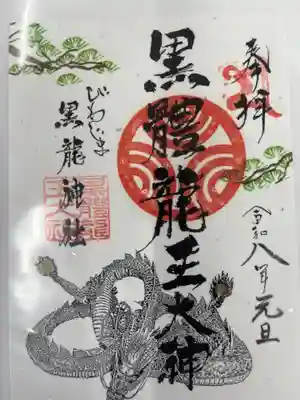 奉拝
黒體龍王大神
令和八年元旦
びわじま
黒龍神社